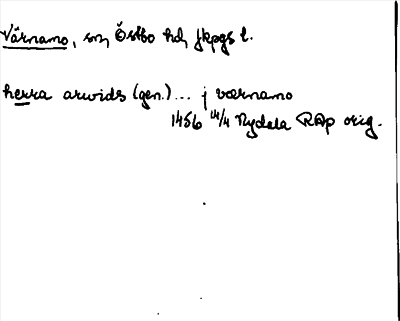 Värnamo, sn, Östbo hd, Jkpgs l.
herra arwids (gen.) ... j værnamo
1456 14/4 Nydala RAp orig.